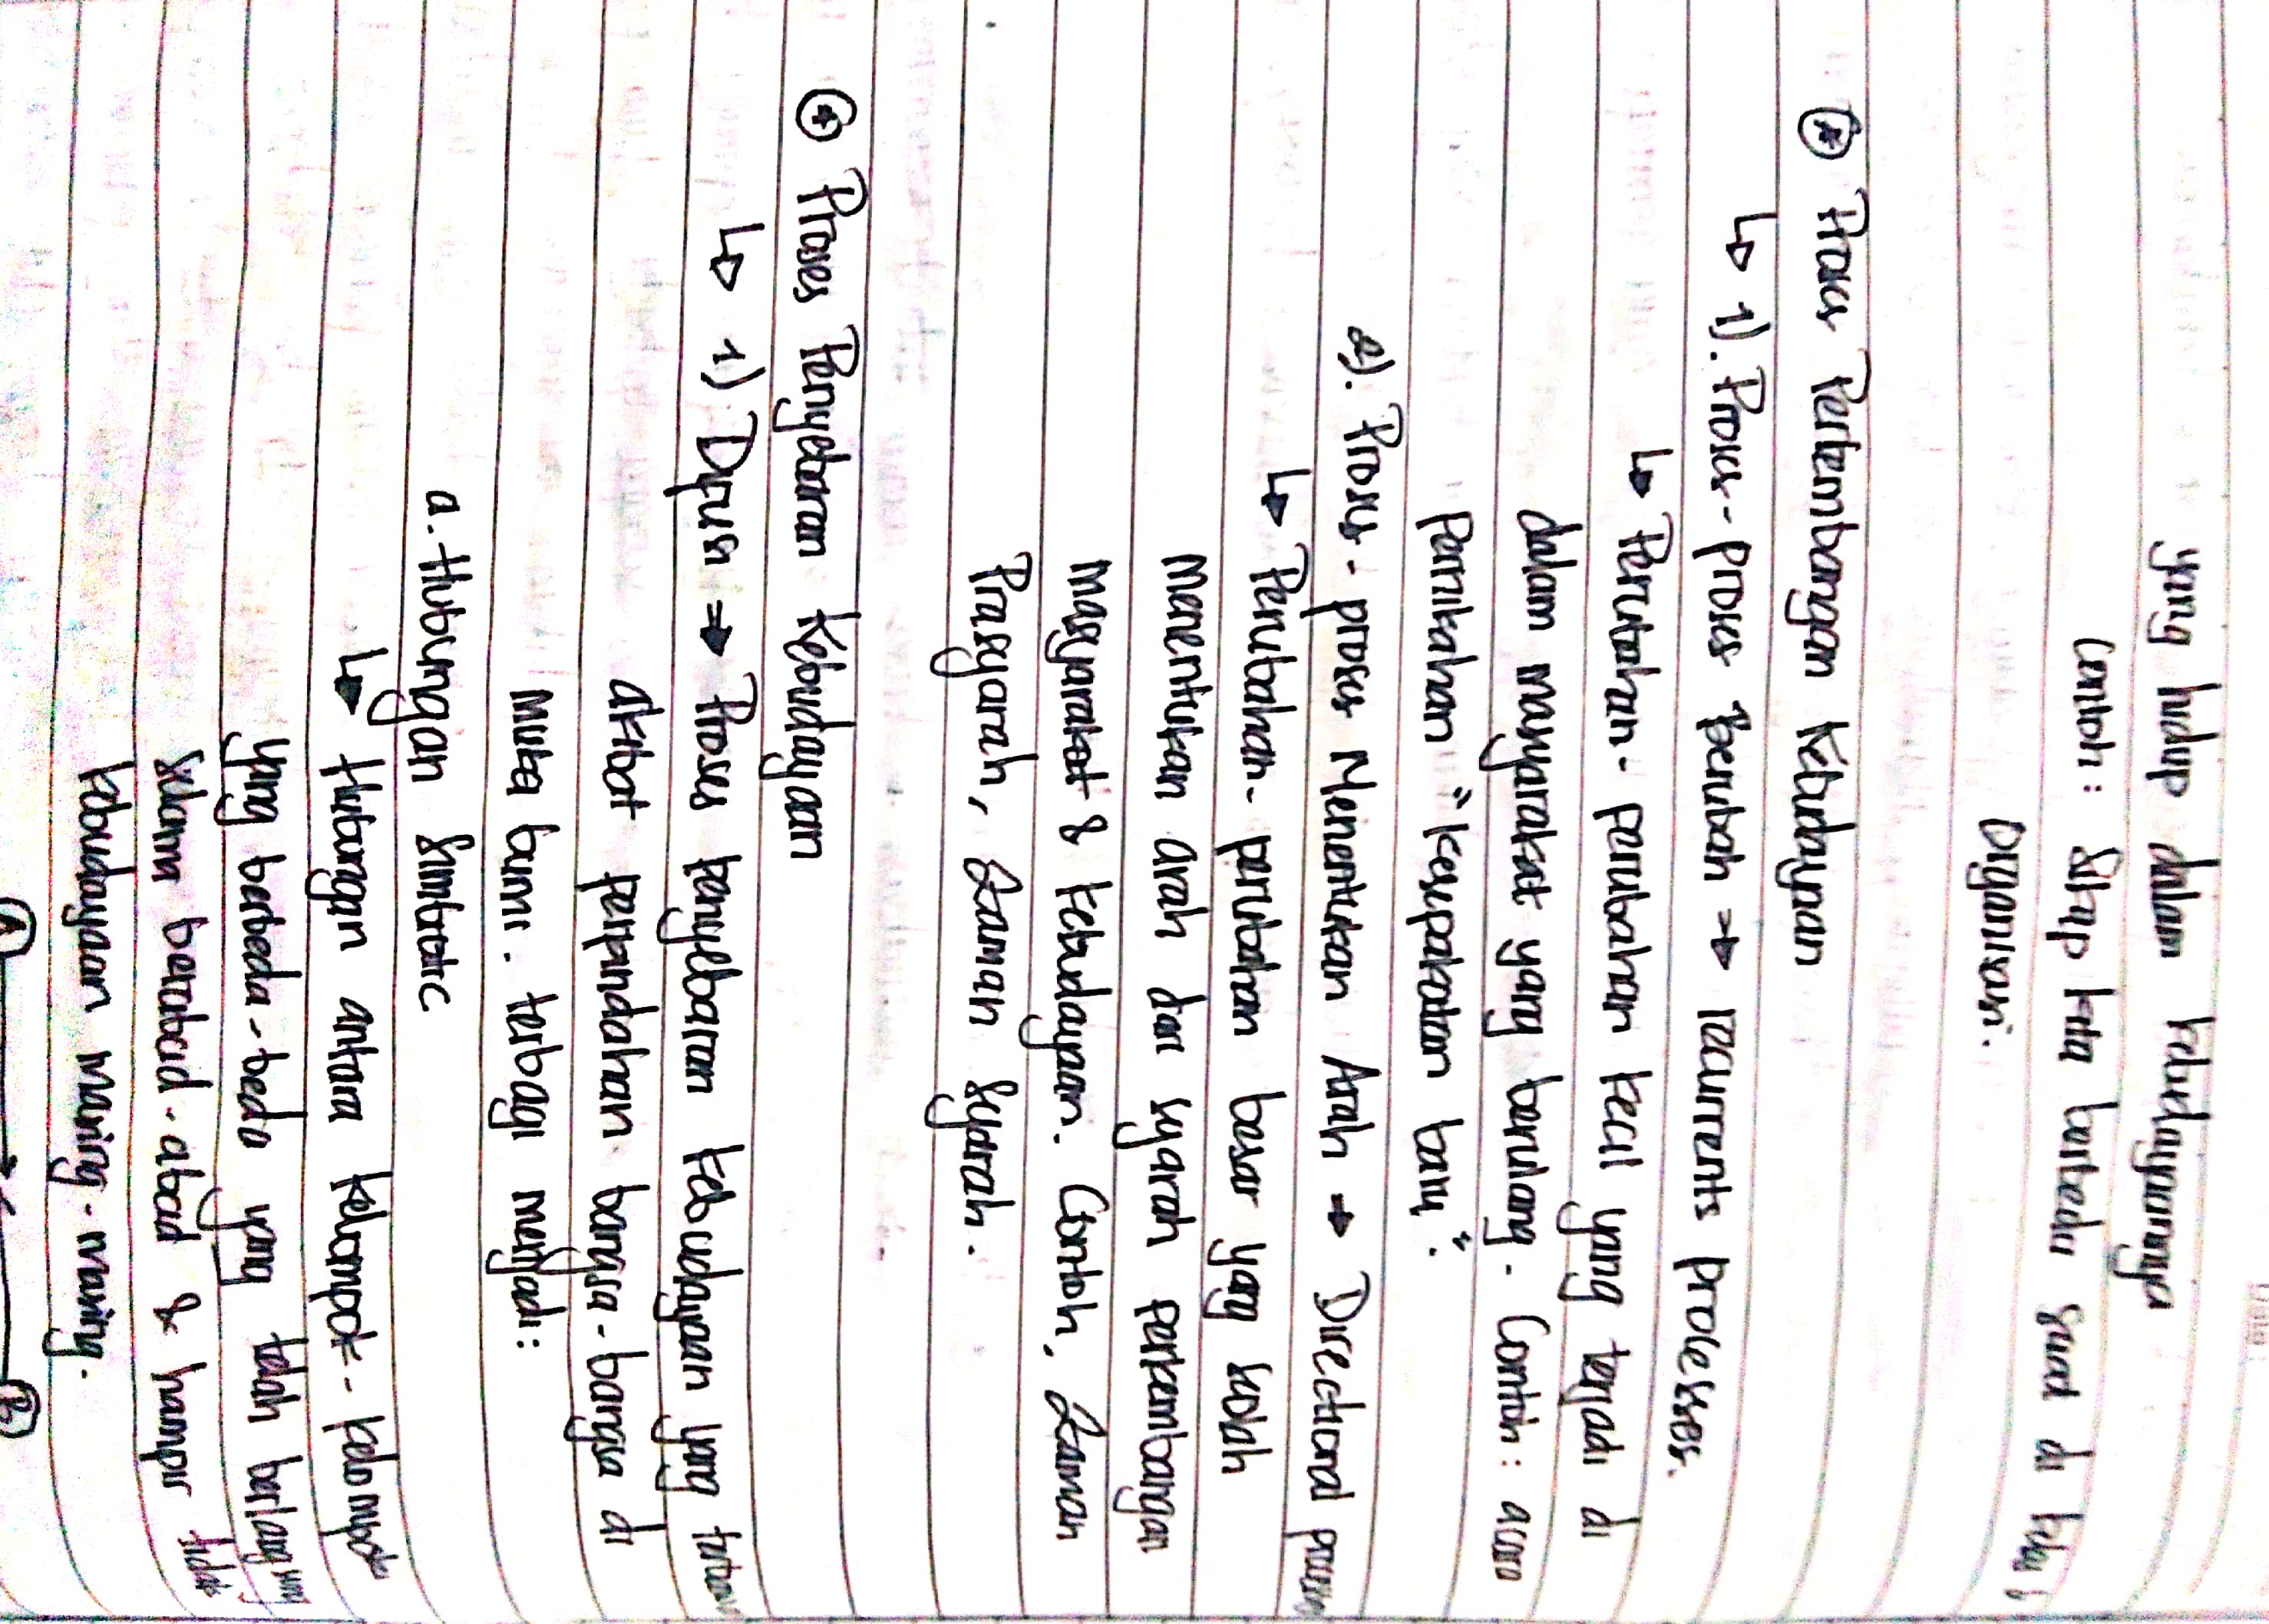 yang hidup dalam kebudayaannya
Contoh: Sikap kita berbeda saat di kelas &
Organisasi.
⊛ Proses Perkembangan Kebudayaan
↳ 1). Proses-proses Berubah → recurrents processes.
↳ Perubahan-perubahan kecil yang terjadi di
dalam masyarakat yang berulang. Contoh: acara
Pernikahan "kesepakatan baru".
2). Proses-proses Menentukan Arah → Directional process
↳ Perubahan-perubahan besar yang seolah
Menentukan arah dari sejarah perkembangan
masyarakat & kebudayaan. Contoh, Zaman
Prasejarah, Zaman Sejarah.
⊛ Proses Penyebaran Kebudayaan
↳ 1) Difusi → Proses penyebaran kebudayaan yang
akibat perpindahan bangsa-bangsa di
Muka bumi. terbagi menjadi:
a. Hubungan Simbiotic
↳ Hubungan antara kelompok-kelompok
yang berbeda-beda yang telah berlangsung
selama berabad-abad & hampir tidak
kebudayaan masing-masing.
A B